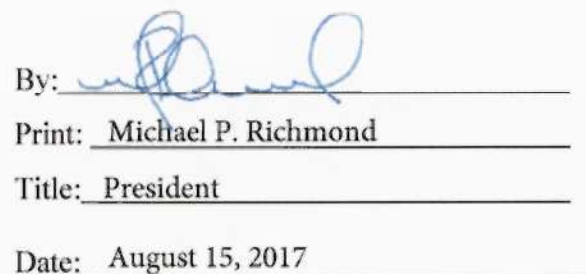 By:
Print: Michael P. Richmond
Title: President
Date: August 15, 2017